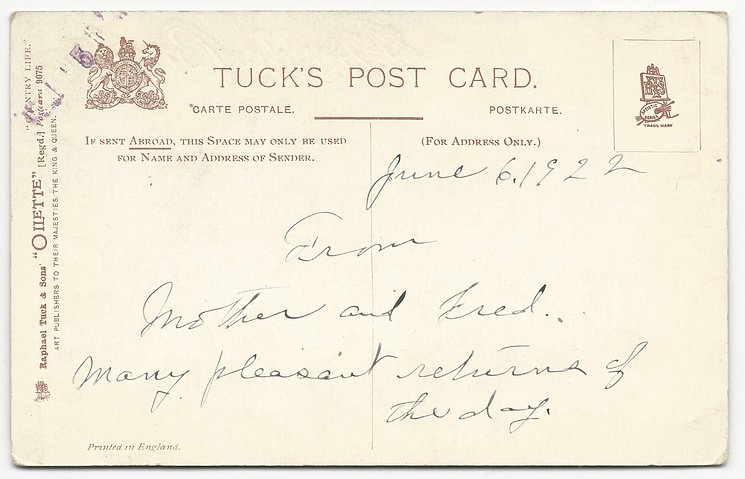 TUCK'S POST CARD.
CARTE POSTALE.
POSTKARTE.
IF SENT ABROAD, THIS SPACE MAY ONLY BE USED
FOR NAME AND ADDRESS OF SENDER.
(FOR ADDRESS ONLY.)
TRADE MARK
June 6. 1922
From
Mother and Fred..
Many pleasant returns of
the day.
Printed in England.
Raphael Tuck & Sons' "OILETTE" [Regd.] Postcard 9075
ART PUBLISHERS TO THEIR MAJESTIES THE KING & QUEEN.